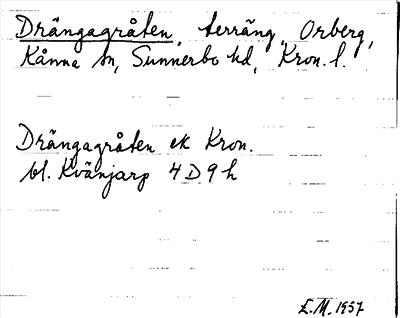 Drängagråten, terräng, Orberg,
Kånna sn, Sunnerbo hd, Kron. l.
Drängagråten ek Kron.
bl. Kvänjarp 4D9h
E.M. 1957